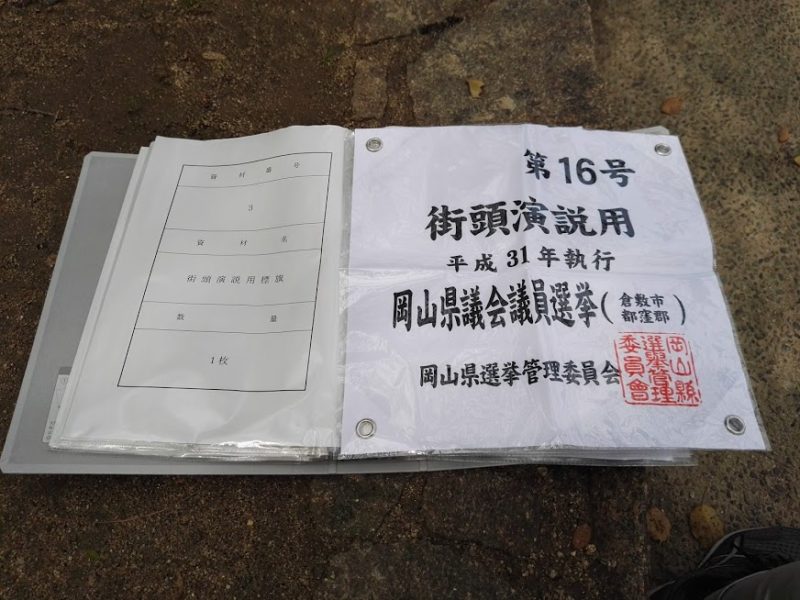 資材番号
3
資材名
街頭演説用標旗
数量
1枚
第16号
街頭演説用
平成31年執行
岡山県議会議員選挙(倉敷市
都窪郡)
岡山県選挙管理委員会
岡山縣
選擧管理
委員會